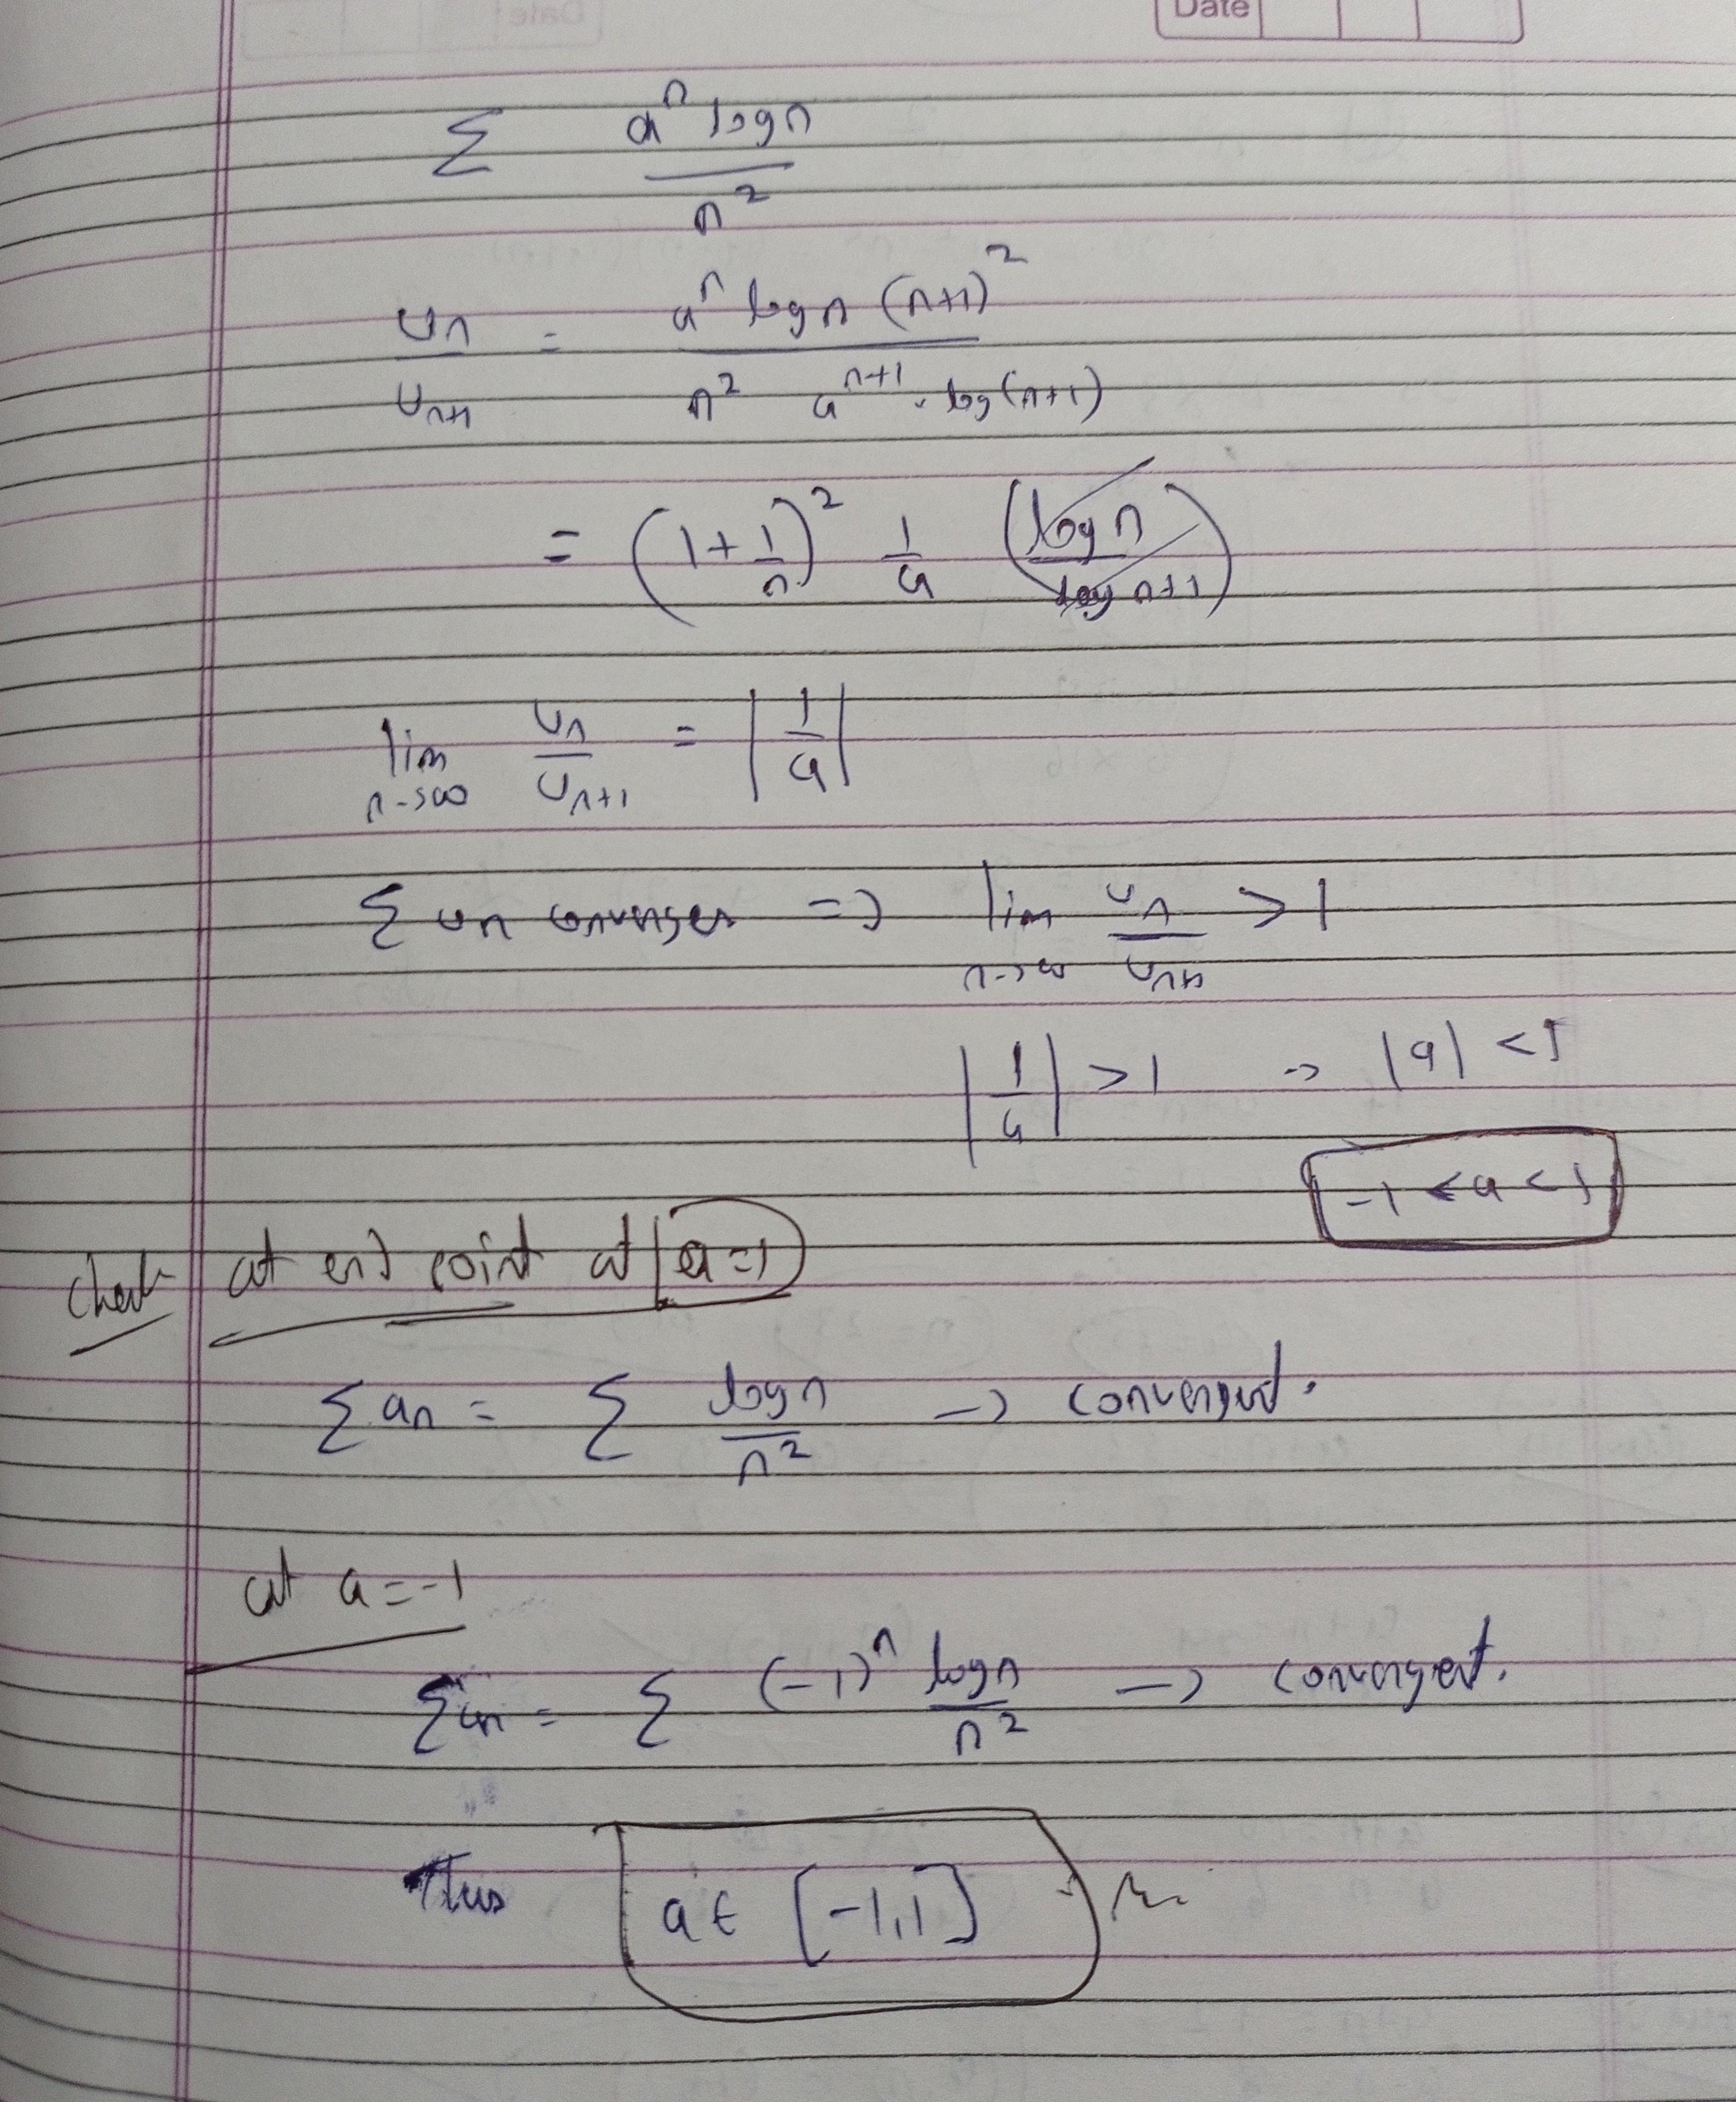 Date
Σ a^n log n / n^2
u_n / u_{n+1} = a^n log n (n+1)^2 / n^2 a^{n+1} . log(n+1)
= (1 + 1/n)^2 1/a (log n / log n+1)
lim n->∞ u_n / u_{n+1} = |1/a|
Σ u_n converges => lim n->∞ u_n / u_{n+1} > 1
|1/a| > 1 -> |a| < 1
-1 < a < 1
check at end point at a = 1
Σ a_n = Σ log n / n^2 -> convergent.
at a = -1
Σ a_n = Σ (-1)^n log n / n^2 -> convergent.
Thus a ∈ [-1,1]